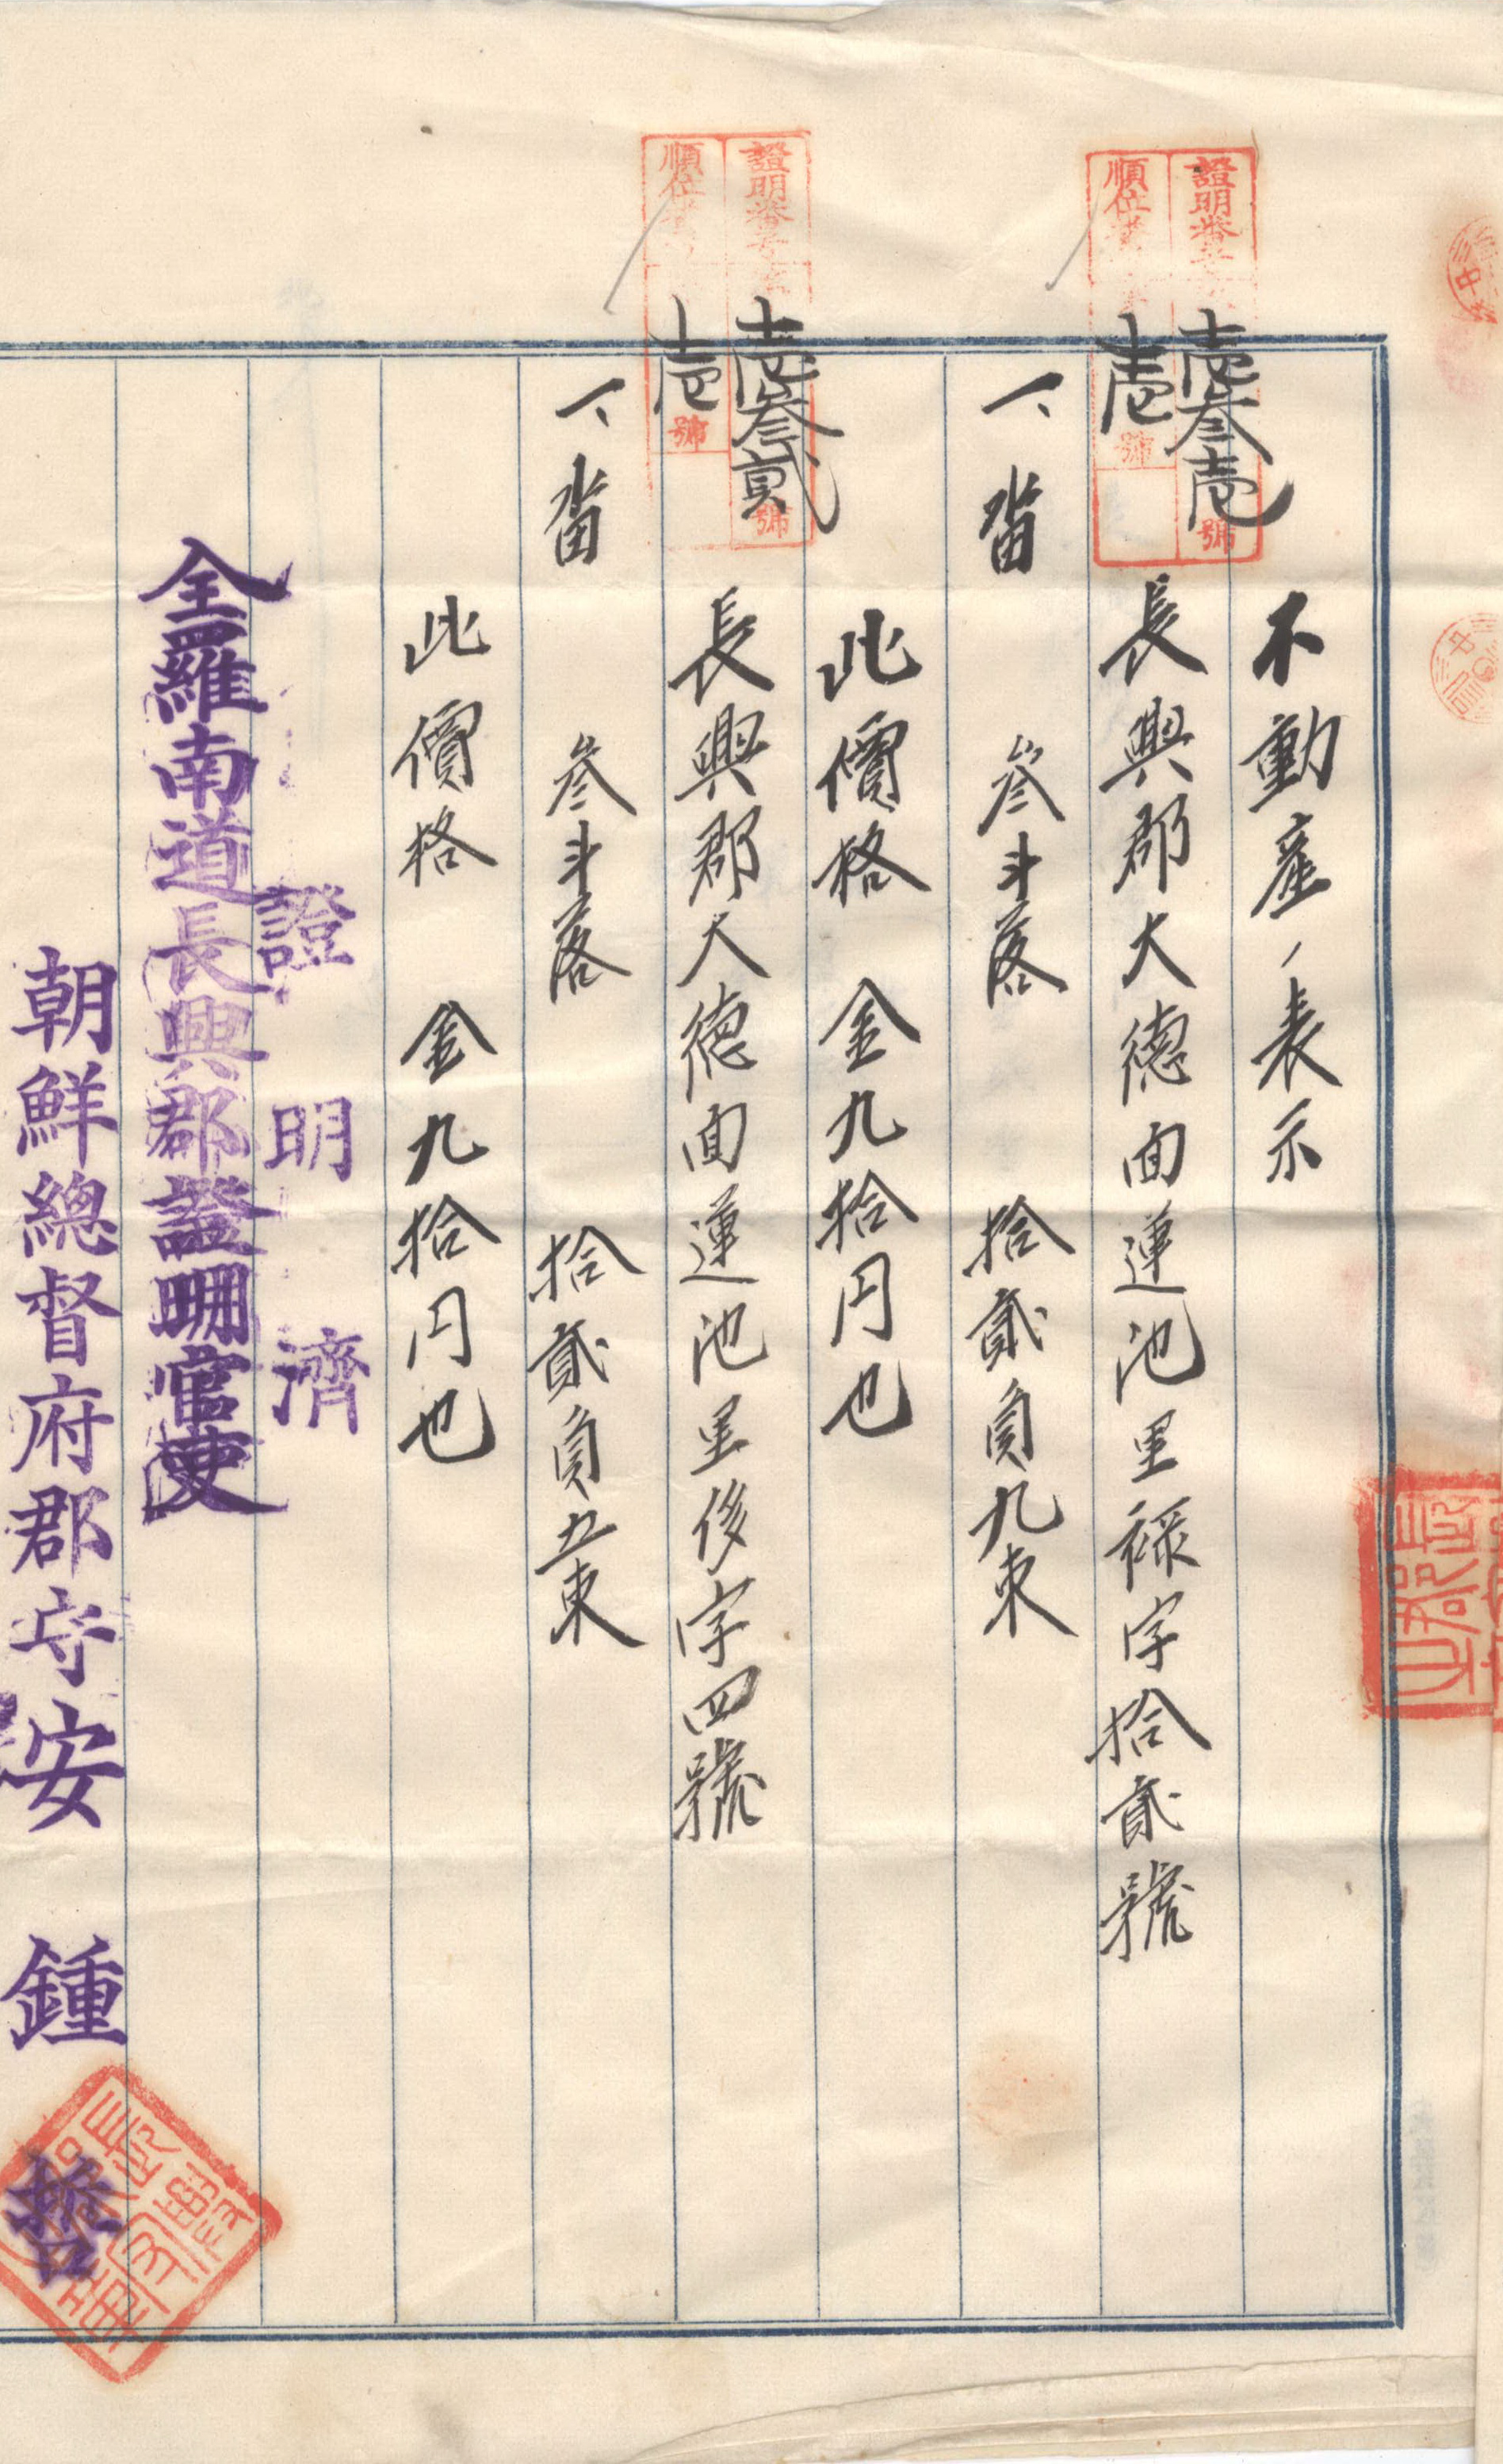 不動産ノ表示
證明番號
壱叁壱
號
順位番
壱
號
長興郡大德面蓮池里祿字拾貳號
一、畓 叁斗落 拾貳負九束
此價格 金九拾円也
證明番號
壱叁貳
號
順位番
壱
號
長興郡大德面蓮池里後字四號
一、畓 叁斗落 拾貳負五束
此價格 金九拾円也
證明濟
全羅南道長興郡證明官吏
朝鮮總督府郡守安鍾